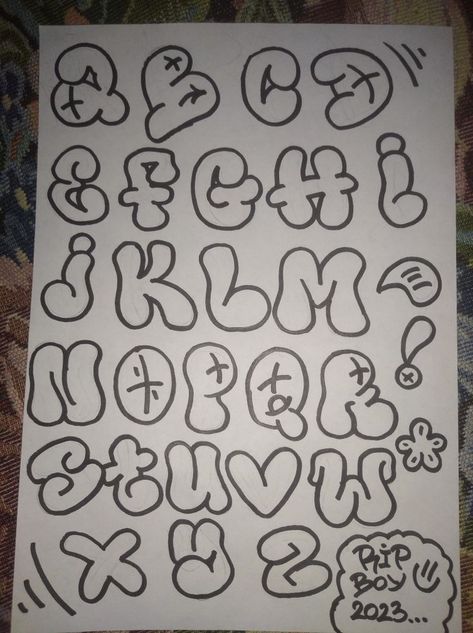 a b C D
E F G H i
j K L M
N O P Q R !
S t u v W
X y Z
RIP
BOY
2023...